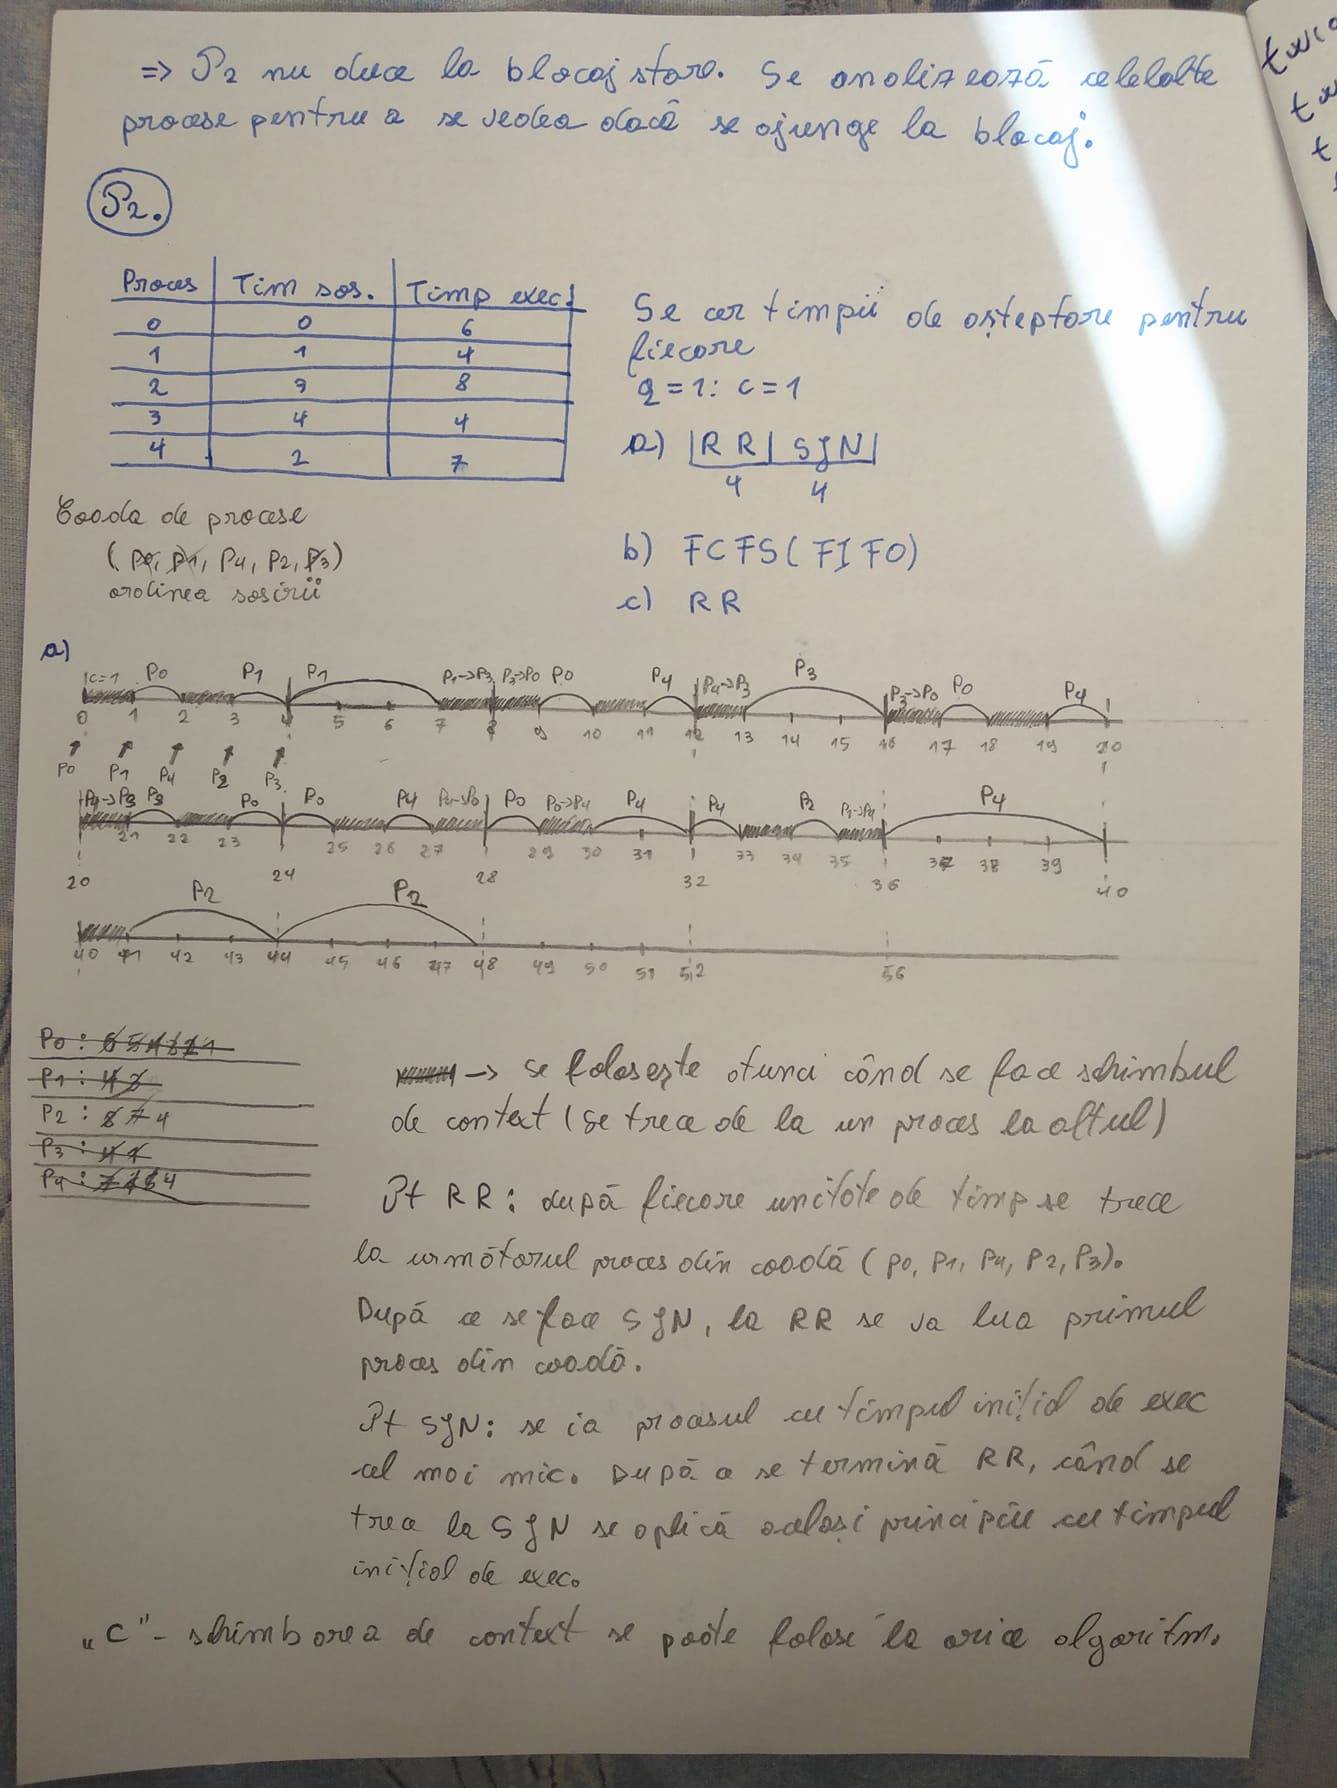 => P2 nu duce la blocaj stare. Se analizează celelalte
procese pentru a se vedea dacă se ajunge la blocaj.
P2.
Proces | Tim sos. | Timp exec.
0 | 0 | 6
1 | 1 | 4
2 | 3 | 8
3 | 4 | 4
4 | 2 | 7
Se cer timpii de așteptare pentru
fiecare
q = 1: c = 1
a) |RR| SJN|
4 4
b) FCFS (FIFO)
c) RR
Coada de procese
(P0, P1, P4, P2, P3)
ordinea sosirii
a)
c=1 P0 P1 P1 P1->P3 P3->P0 P0 P4 P4->P3 P3 P3->P0 P0 P4
0 1 2 3 4 5 6 7 8 9 10 11 12 13 14 15 16 17 18 19 20
P0 P1 P4 P2 P3
P4->P3 P3 P0 P0 P4 P4->P0 P0 P0->P4 P4 P4 P2 P2->P4 P4
21 22 23 25 26 27 29 30 31 33 34 35 37 38 39
20 24 28 32 36 40
P2 P2
40 41 42 43 44 45 46 47 48 49 50 51 52 56
P0: 6 5 4 3 2 1
P1: 4 3
P2: 8 7 4
P3: 4 1
P4: 4
-> se folosește atunci când se face schimbul
de context (se trece de la un proces la altul)
Pt RR: după fiecare unitate de timp se trece
la următorul proces din coadă (P0, P1, P4, P2, P3).
După ce se face SJN, la RR se va lua primul
proces din coadă.
Pt SJN: se ia procesul cu timpul inițial de exec
cel mai mic. După ce se termină RR, când se
trece la SJN se aplică același principiu cu timpul
inițial de exec.
"C" - schimbarea de context se poate folosi la orice algoritm.